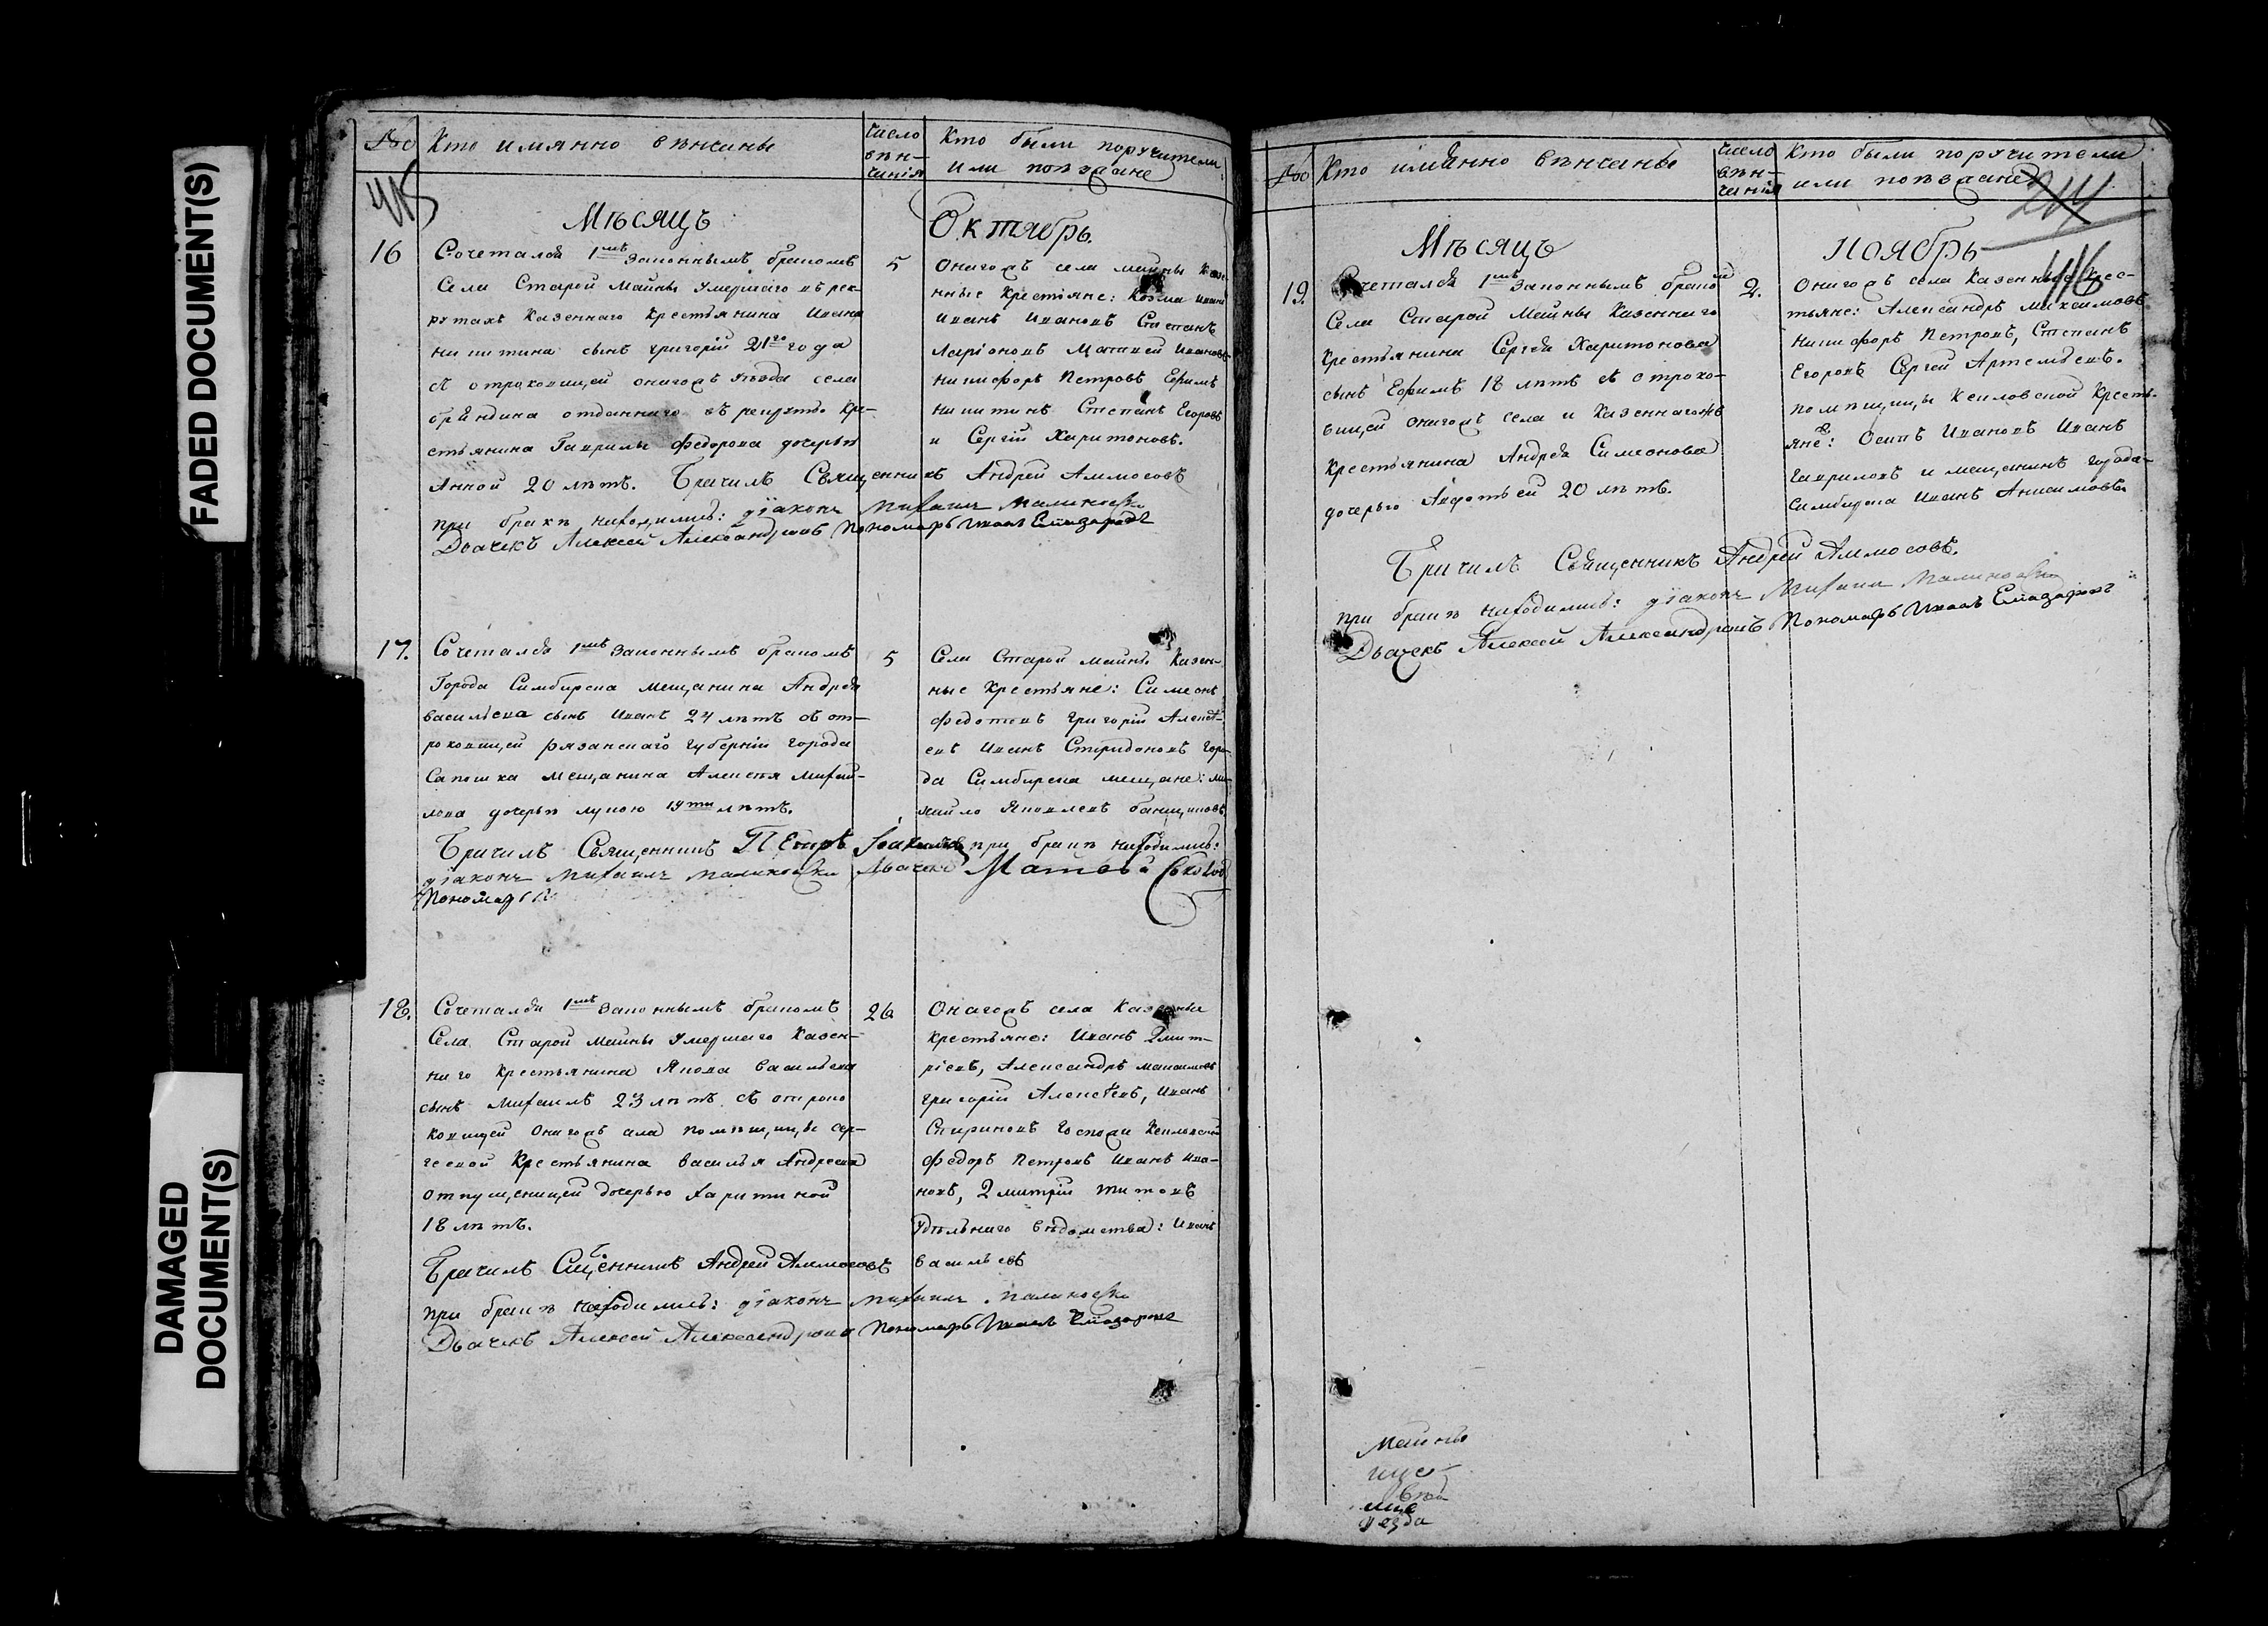 FADED DOCUMENT(S)
DAMAGED
DOCUMENT(S)
№ Кто имянно вѣнчаны
число
вѣн-
чанія
Кто были поручители
или поѣзжане
415
Мѣсяцъ Октябрь.
16 Сочетался 1мъ законнымъ бракомъ
Села Старой Майны умершаго въ рек-
рутахъ Казеннаго Крестьянина Ивана
никитина сынъ григорій 21го года
съ отроковицей онагожъ уѣзда села
отданнаго въ рекруты Кре-
стьянина Гаврилы федорова дочерью
Анной 20 лѣтъ. Брачилъ Священникъ Андрей Аммосовъ
при бракѣ находились: діаконъ Михаилъ Малиновски
Дьячекъ Алексей Александровъ Пономарь Иванъ Елиазаровъ
5
Онагожъ села майны казе-
нные Крестьяне: Козма
Иванъ Ивановъ Степанъ
Ларіоновъ Матвей Ивановъ
Никифоръ Петровъ Ефимъ
Никитинъ Степанъ Егоровъ
и Сергій Харитоновъ.
17. Сочетался 1мъ законнымъ бракомъ
Города Симбирска мещанина Андрея
васильева сынъ Иванъ 24 лѣтъ съ от-
роковицей рязанскаго Губерніи города
Сапошка мещанина Алексея Михай-
лова дочерью 19ти лѣтъ.
Брачилъ Священникъ Петръ при бракѣ находились:
діаконъ Михаилъ Малиновски Дьячекъ Матвѣй
Пономарь
5
Села Старой майны Казен-
ные Крестьяне: Симеонъ
федотовъ григорій Алексѣ-
евъ Иванъ Спиридоновъ горо-
да Симбирска мещане: ми-
хайло Яковлевъ
18. Сочетался 1мъ законнымъ бракомъ
Села Старой майны умершаго Казен-
наго Крестьянина Якова васильева
сынъ Михаилъ 23 лѣтъ съ отроко
вицей онагожъ села помѣщицы сер-
геевой Крестьянина василья Андреева
отпущенницей дочерью харитиной
18 лѣтъ.
Брачилъ Сщенникъ Андрей Аммосовъ
при бракѣ находились: діаконъ Михаилъ Малиновски
Дьячекъ Алексей Александровъ Пономарь Иванъ Елиазаровъ
26
Онагожъ села Казенные
Крестьяне: Иванъ Дмит-
ріевъ, Александръ максимовъ
григорій Алексѣевъ, Иванъ
Господи
федоръ Петровъ Иванъ Ива-
новъ, Дмитрій титовъ
Удѣльнаго вѣдомства: Иванъ
васильевъ
№ Кто имянно вѣнчаны
число
вѣн-
чанія
Кто были поручители
или поѣзжане
214
416
Мѣсяцъ Ноябрь
19. Сочетался 1мъ законнымъ бракомъ
Села Старой Майны Казеннаго
Крестьянина Сергея Харитонова
сынъ Ефимъ 18 лѣтъ съ отроко-
вицей онагожъ села и Казеннагожъ
Крестьянина Андрея Симеонова
дочерью Авдотьей 20 лѣтъ.
2.
Онагожъ села Казенные Крес-
тьяне: Александръ Максимовъ
Никифоръ Петровъ, Степанъ
Егоровъ Сергей Артемьевъ.
помѣщицы Кресть-
яне: Осипъ Ивановъ Иванъ
Гавриловъ и мещанинъ города
Симбирска Иванъ Анисимовъ
Брачилъ Священникъ Андрей Аммосовъ.
при бракѣ находились: діаконъ Михаилъ Малиновски
Дьячекъ Алексей Александровъ Пономарь Иванъ Елиазаровъ
Майны
уезда